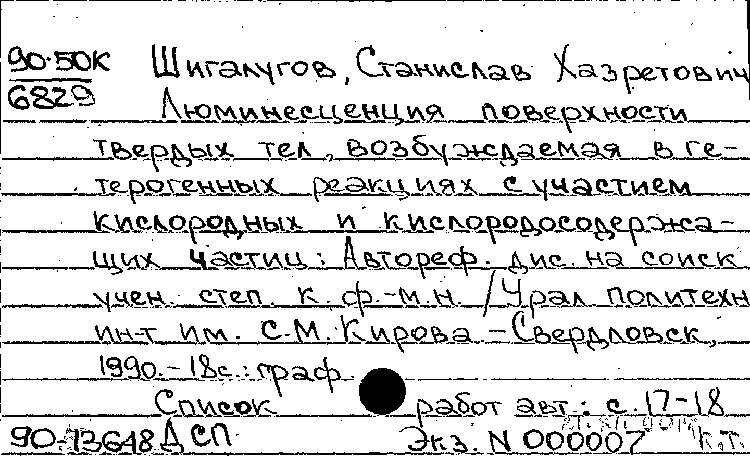 90-50К Шигалугов, Станислав Хазретович
6829 Люминесценция поверхности
твердых тел, возбуждаемая в ге-
терогенных реакциях с участием
кислородных и кислородосодержа-
щих частиц: Автореф. дис. на соиск
учен. степ. к. ф.-м.н. / Урал политехн
ин-т им. С.М. Кирова - Свердловск,
1990. - 18с.: граф.
Список работ авт.: с. 17-18
90-13648 ДСП Экз. N 000007 К.Т.